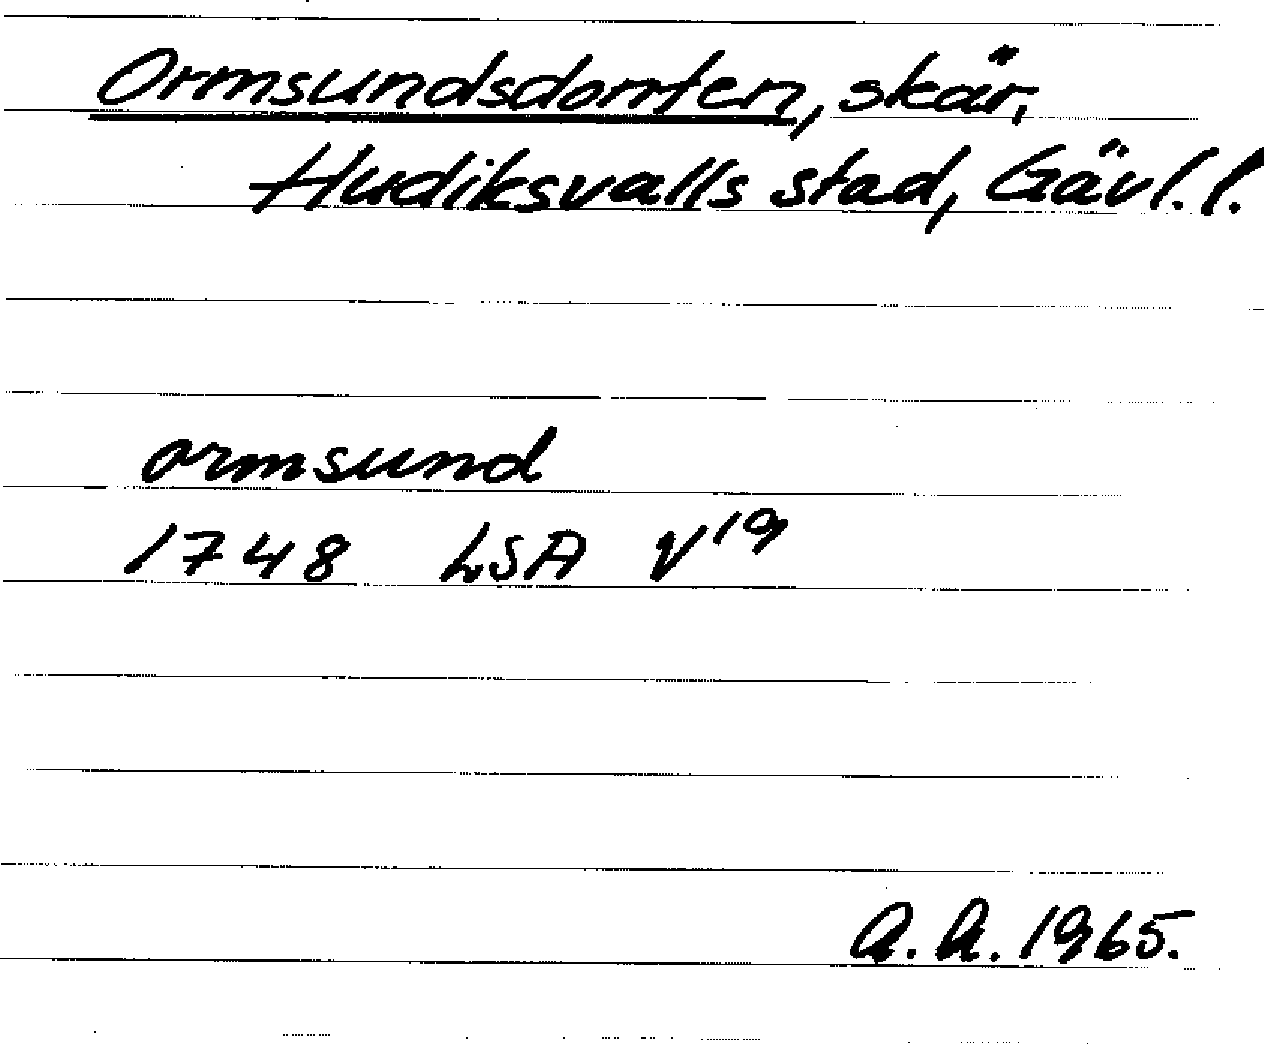 Ormsundsdomten, skär,
Hudiksvalls stad, Gävl.l.
ormsund
1748 LSA V¹⁹
A.A. 1965.